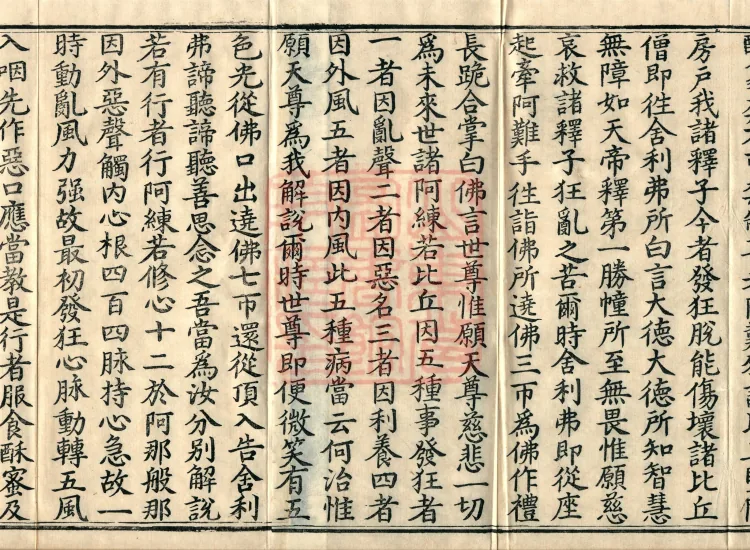 房戶我諸釋子今者發狂脫能傷壞諸比丘
僧即往舍利弗所白言大德大德所知智慧
無障如天帝釋第一勝幢所至無畏惟願慈
哀救諸釋子狂亂之苦爾時舍利弗即從座
起牽阿難手往詣佛所遶佛三帀爲佛作禮
長跪合掌白佛言世尊惟願天尊慈悲一切
爲未來世諸阿練若比丘因五種事發狂者
一者因亂聲二者因惡名三者因利養四者
因外風五者因內風此五種病當云何治惟
願天尊爲我解說爾時世尊即便微笑有五
色光從佛口出遶佛七帀還從頂入告舍利
弗諦聽諦聽善思念之吾當爲汝分別解說
若有行者行阿練若修心十二於阿那般那
因外惡聲觸內心根四百四脉持心急故一
時動亂風力强故最初發狂心脉動轉五風
入咽先作惡口應當教是行者服食酥蜜及